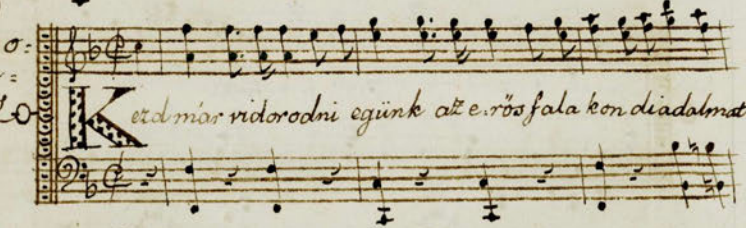 Kezd már vidorodni egünk az e.rös fala kon diadalmat